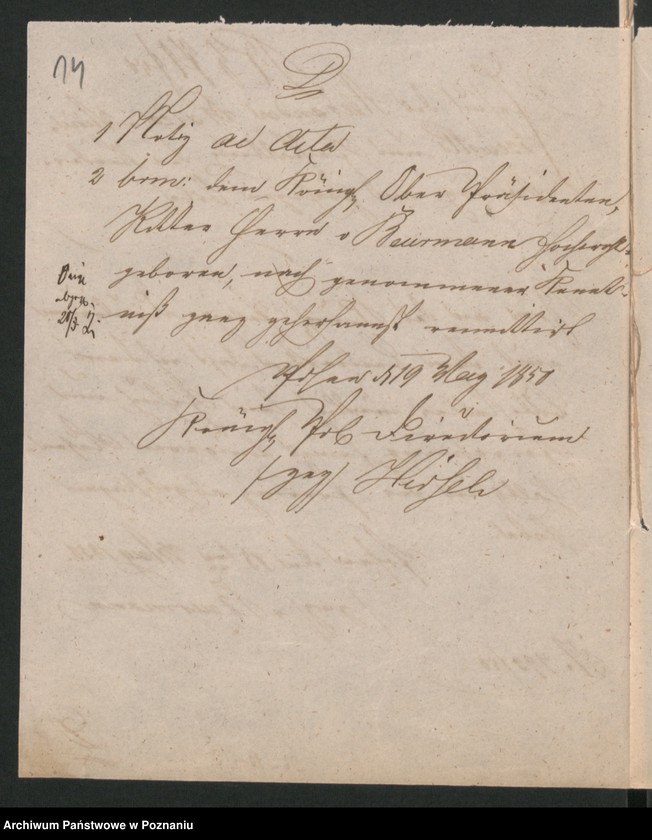 14
D
1 Notiz ad Acta
2 brm: dem Königl Ober Präsidenten,
Ritter Herrn v Beurmann Hochwohl-
geboren, nach genommener Kennt-
niß ganz gehorsamst remittirt
Posen d 19 May 1850
Königl Pol Directorium
/gez/ Hirsch
Archiwum Państwowe w Poznaniu